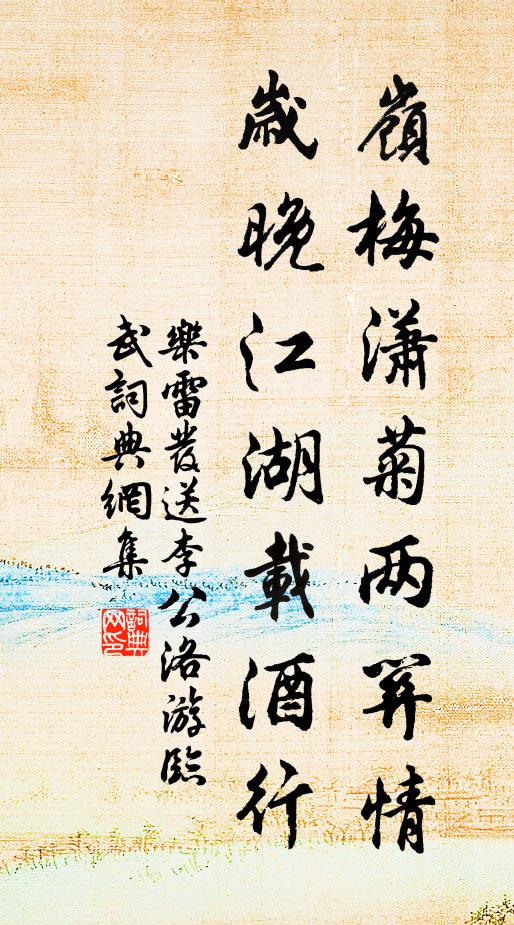 嶺梅瀟菊两関情
歲晚江湖載酒行
樂雷發送李公洛游臨
武詞典網集
詞典网印